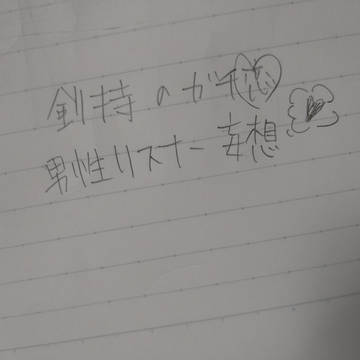 剣持のガチ恋
男性リスナー妄想